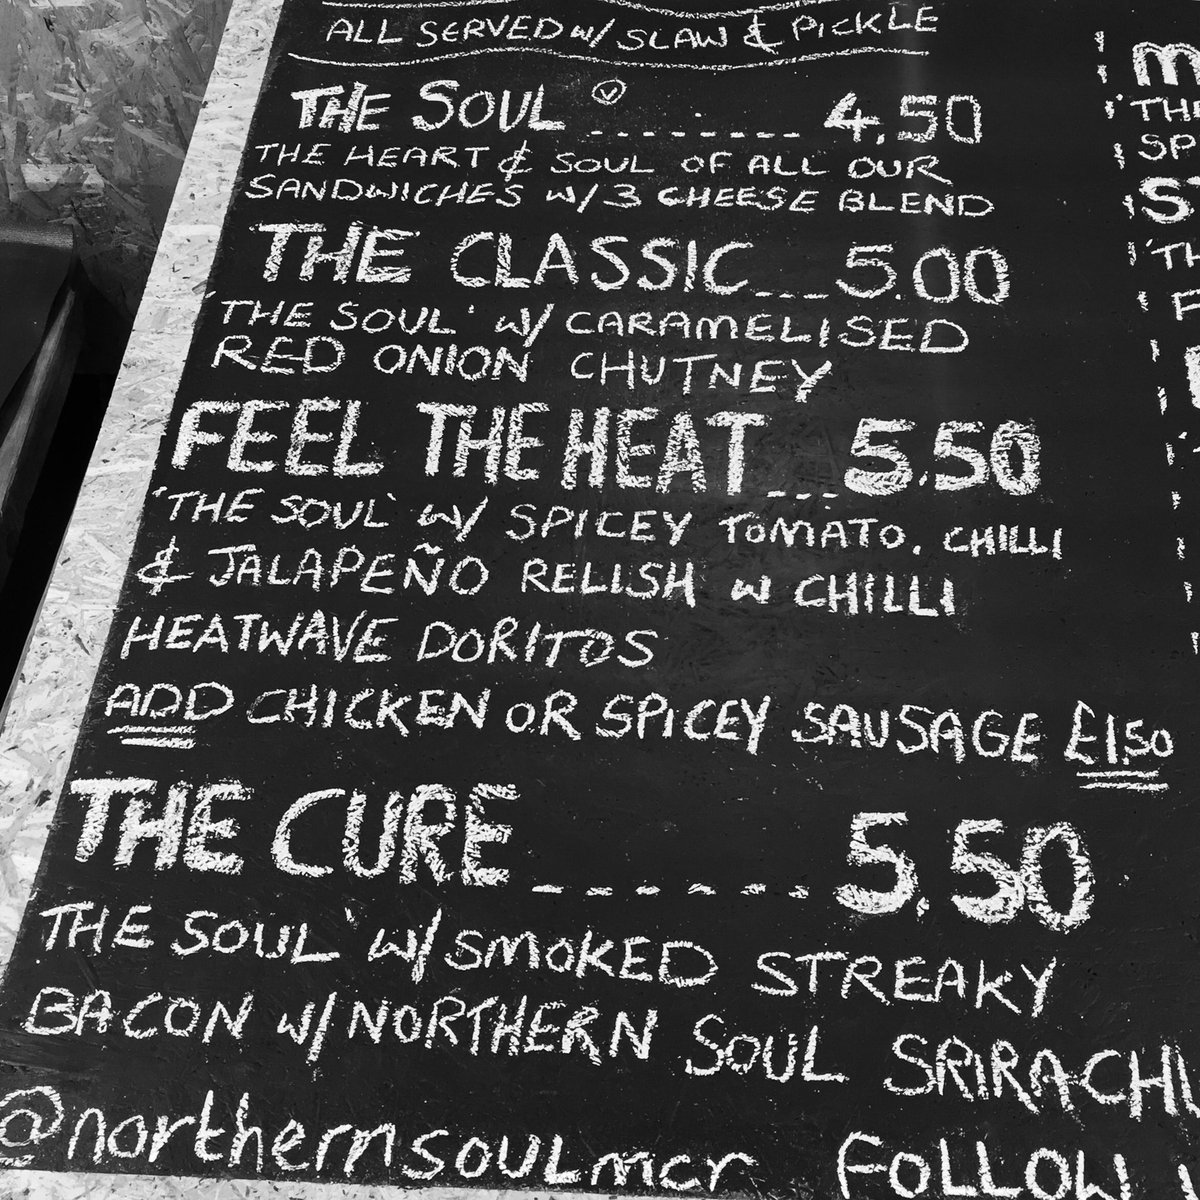 ALL SERVED w/ SLAW & PICKLE
THE SOUL Ⓥ ........ 4.50
THE HEART & SOUL OF ALL OUR
SANDWICHES w/ 3 CHEESE BLEND
THE CLASSIC ... 5.00
'THE SOUL' w/ CARAMELISED
RED ONION CHUTNEY
FEEL THE HEAT ... 5.50
'THE SOUL' w/ SPICEY TOMATO, CHILLI
& JALAPEÑO RELISH w CHILLI
HEATWAVE DORITOS
ADD CHICKEN OR SPICEY SAUSAGE £1.50
THE CURE ....... 5.50
'THE SOUL' w/ SMOKED STREAKY
BACON w/ NORTHERN SOUL SRIRACH
@northernsoulmcr FOLLOW
M
'TH
SP
S
'TH
F